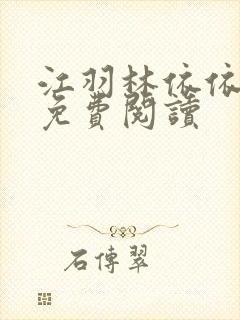 江羽林依依
免費閱讀
石傳翠